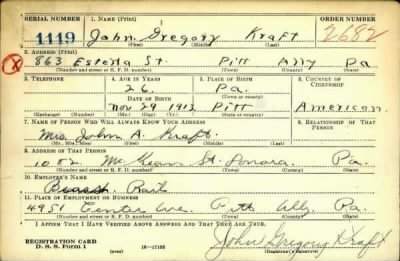 SERIAL NUMBER 1. NAME (Print) ORDER NUMBER
1119 John Gregory Kraft 2682
(First) (Middle) (Last)
2. ADDRESS (Print)
X 863 Estella St. Pitt Ally Pa
(Number and street or R. F. D. number) (Town) (County) (State)
3. TELEPHONE 4. AGE IN YEARS 5. PLACE OF BIRTH 6. COUNTRY OF CITIZENSHIP
26 Pa.
DATE OF BIRTH
Nov 29 1913 Pitt American
(Exchange) (Number) (Mo.) (Day) (Yr.) (Town or county) (State or country)
7. NAME OF PERSON WHO WILL ALWAYS KNOW YOUR ADDRESS 8. RELATIONSHIP OF THAT PERSON
Mrs John A. Kraft.
9. ADDRESS OF THAT PERSON
1082 McKean St. Donora. Pa.
(Number and street or R. F. D. number) (Town) (County) (State)
10. EMPLOYER'S NAME
11. PLACE OF EMPLOYMENT OR BUSINESS
4951 Center Ave. Pitt Ally. Pa.
(Number and street or R. F. D. number) (Town) (County) (State)
I AFFIRM THAT I HAVE VERIFIED ABOVE ANSWERS AND THAT THEY ARE TRUE.
REGISTRATION CARD
D. S. S. Form 1 (over) 16—17105 John Gregory Kraft
(Registrant's signature)